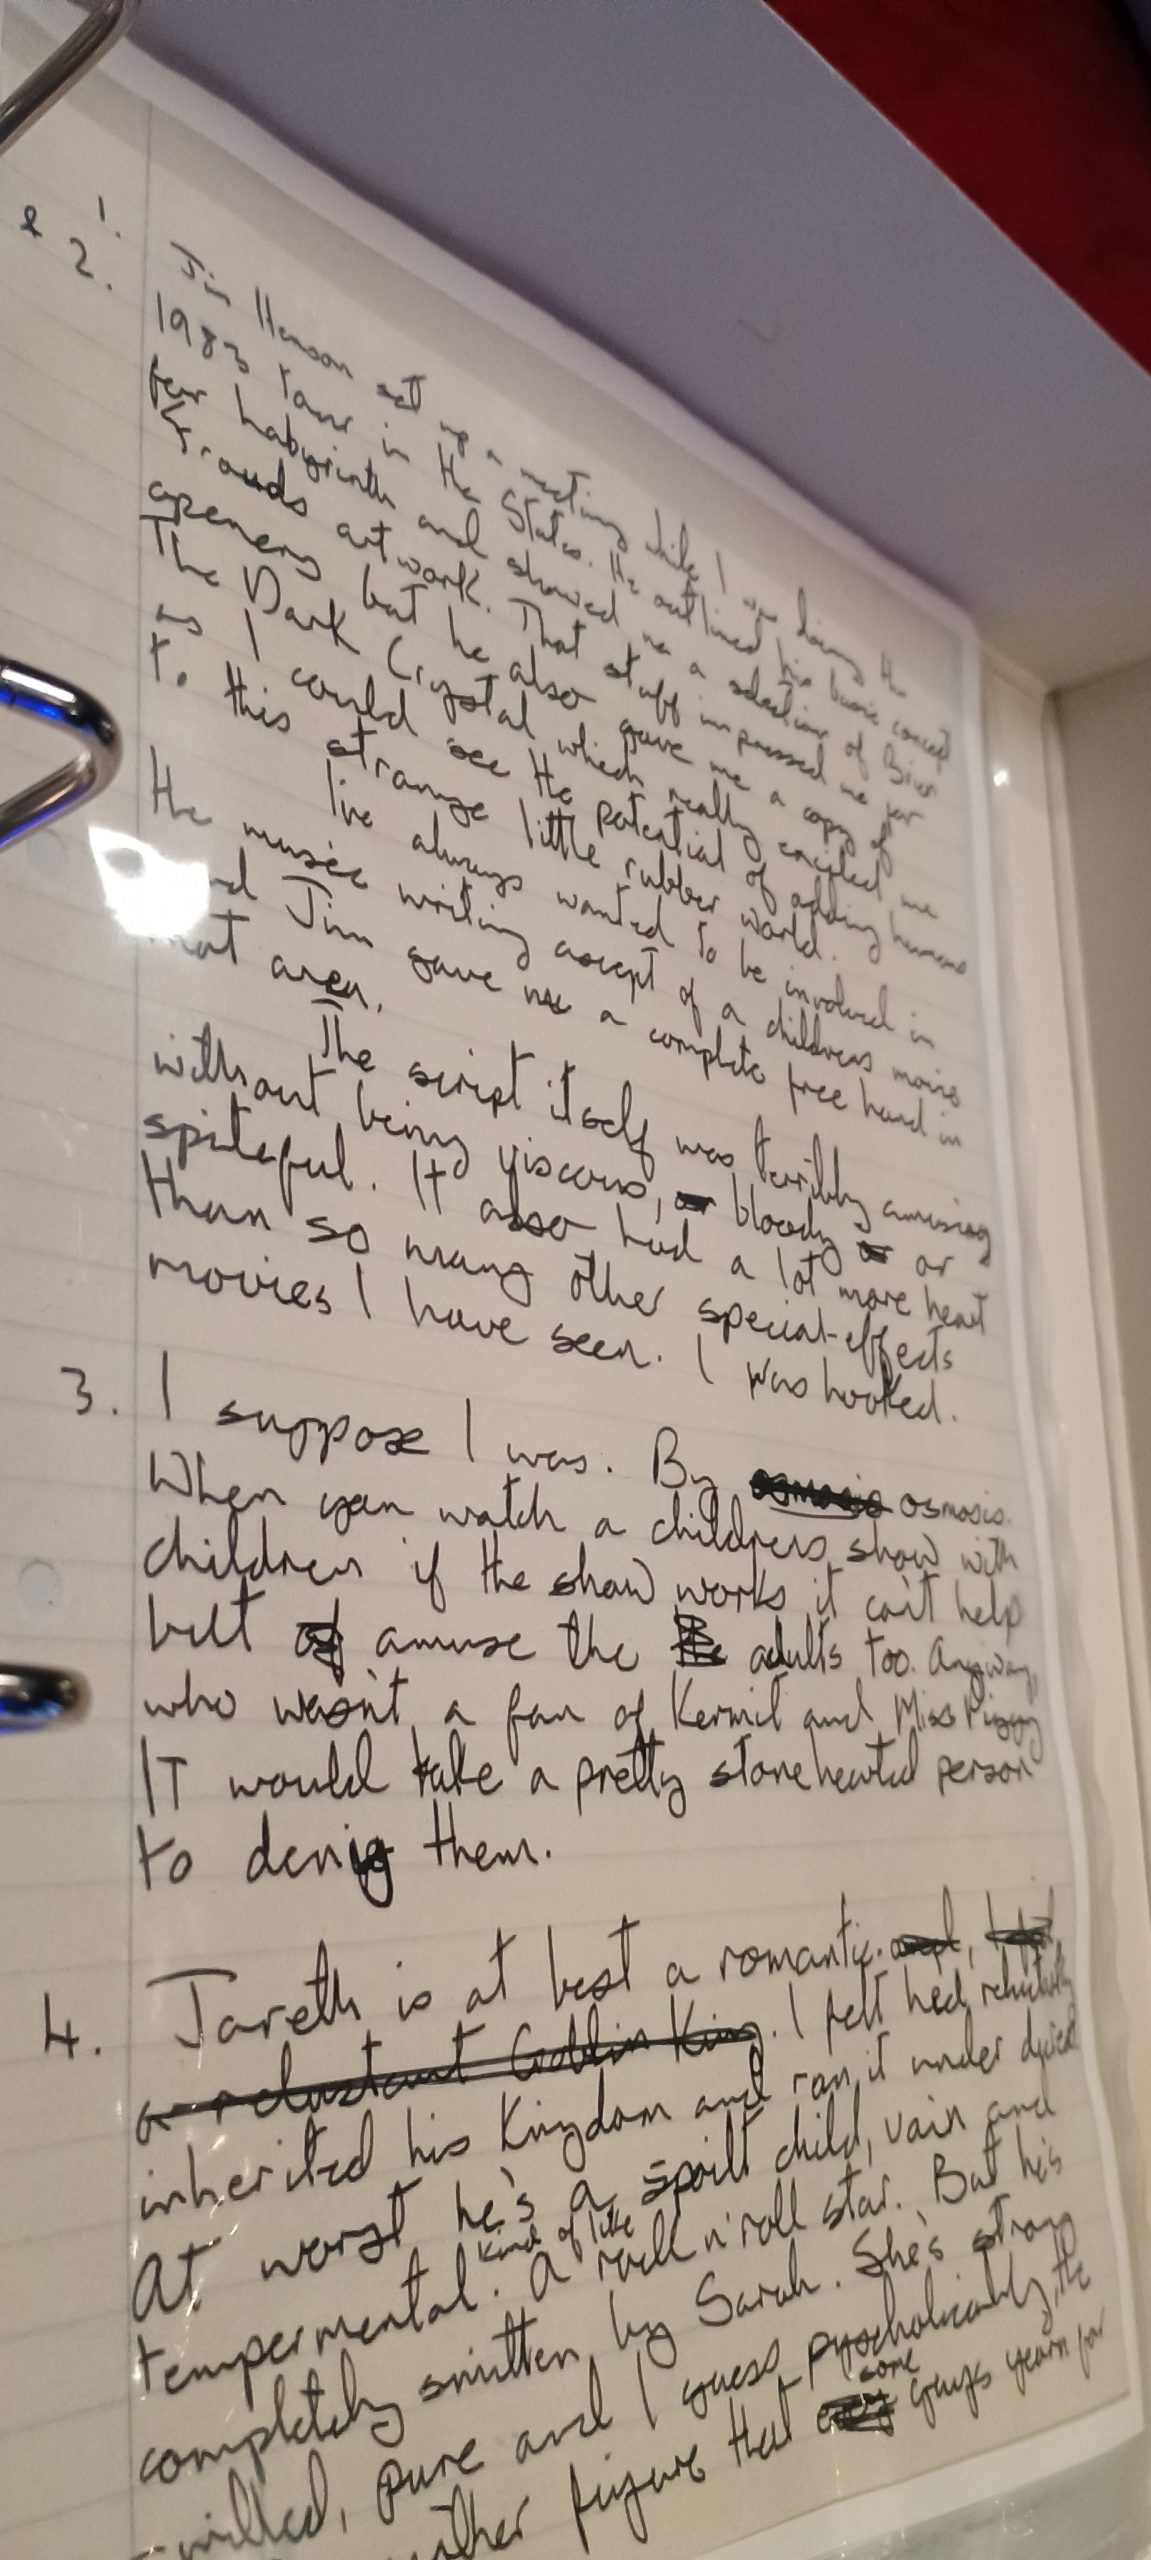 1.
& 2. Jim Henson set up a meeting while I was doing the
1983 tour in the States. He outlined his basic concept
for Labyrinth and showed me a selection of Brian
Frouds artwork. That stuff impressed me for
openers but he also gave me a copy of
The Dark Crystal which really excited me
as I could see the potential of adding humans
to this strange little rubber world.
I've always wanted to be involved in
the music writing ascept of a childrens movie
and Jim gave me a complete free hand in
that area.
The script itself was terribly amusing
without being viscous, bloody or
spiteful. It also had a lot more heart
than so many other special-effects
movies I have seen. I was hooked.
3. I suppose I was. By osmosis osmosis.
When you watch a childrens show with
children if the show works it can't help
but of amuse the adults too. Anyway,
who wasn't a fan of Kermit and Miss Piggy
IT would take a pretty stonehearted person
to deny them.
4. Jareth is at best a romantic.
a reluctant Goblin King. I felt hed reluctantly
inherited his Kingdom and ran it under duress
At worst he's a spoilt child, vain and
tempermental. kind of like A rock n' roll star. But he's
completely smitten by Sarah. She's strong
willed, pure and I guess pyscholicably, the
mother figure that some guys yearn for